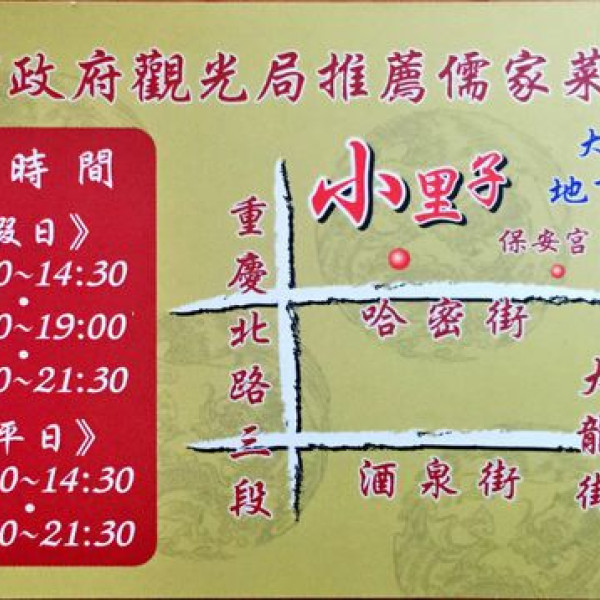 政府觀光局推薦儒家菜
時間
假日》
0~14:30
0~19:00
0~21:30
平日》
0~14:30
0~21:30
重慶北路三段
小里子
保安宮
哈密街
大龍街
酒泉街
大
地